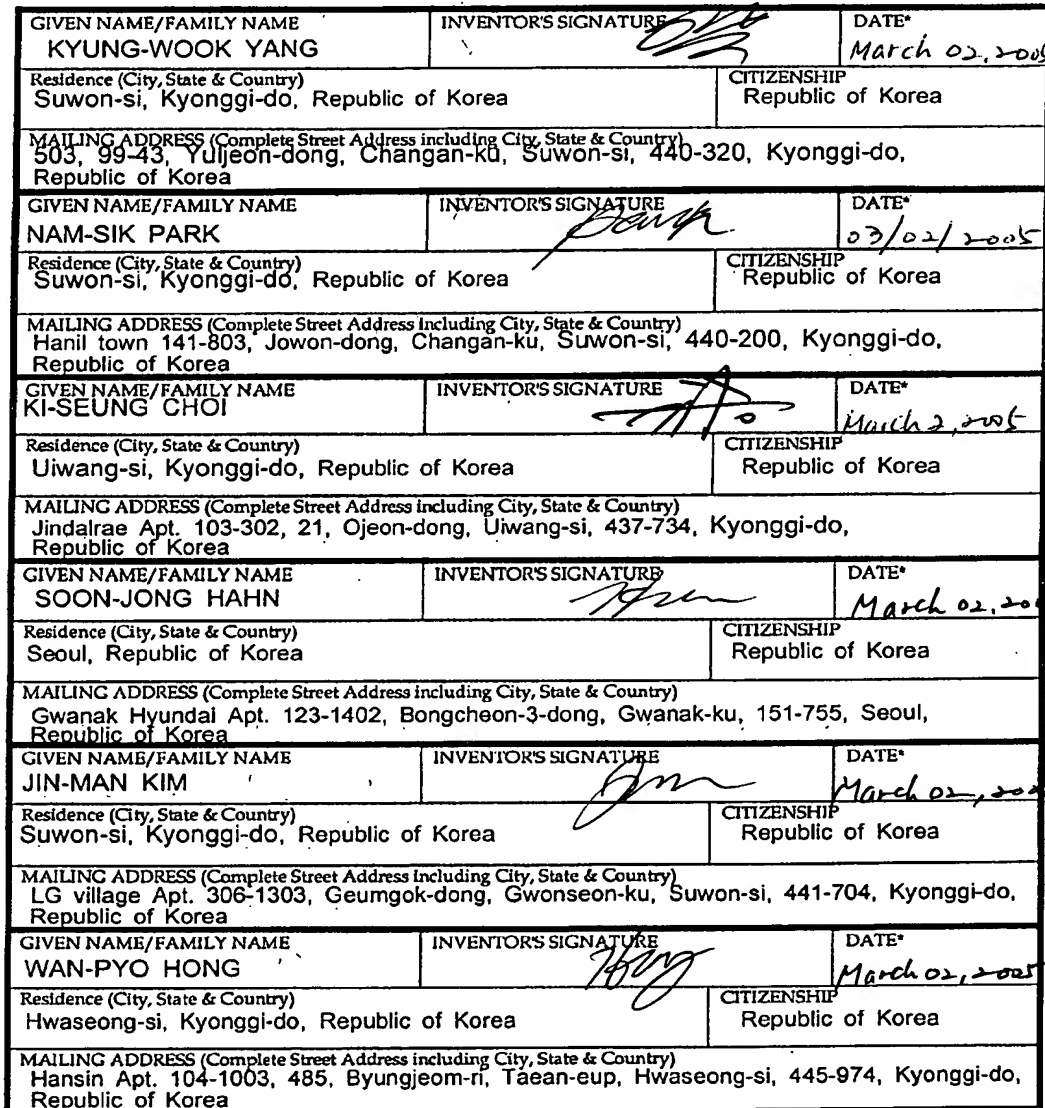 GIVEN NAME/FAMILY NAME INVENTOR'S SIGNATURE DATE*
KYUNG-WOOK YANG March 02, 2005
Residence (City, State & Country) CITIZENSHIP
Suwon-si, Kyonggi-do, Republic of Korea Republic of Korea
MAILING ADDRESS (Complete Street Address including City, State & Country)
503, 99-43, Yuljeon-dong, Changan-ku, Suwon-si, 440-320, Kyonggi-do,
Republic of Korea
GIVEN NAME/FAMILY NAME INVENTOR'S SIGNATURE DATE*
NAM-SIK PARK 03/02/2005
Residence (City, State & Country) CITIZENSHIP
Suwon-si, Kyonggi-do, Republic of Korea Republic of Korea
MAILING ADDRESS (Complete Street Address including City, State & Country)
Hanil town 141-803, Jowon-dong, Changan-ku, Suwon-si, 440-200, Kyonggi-do,
Republic of Korea
GIVEN NAME/FAMILY NAME INVENTOR'S SIGNATURE DATE*
KI-SEUNG CHOI March 2, 2005
Residence (City, State & Country) CITIZENSHIP
Uiwang-si, Kyonggi-do, Republic of Korea Republic of Korea
MAILING ADDRESS (Complete Street Address including City, State & Country)
Jindalrae Apt. 103-302, 21, Ojeon-dong, Uiwang-si, 437-734, Kyonggi-do,
Republic of Korea
GIVEN NAME/FAMILY NAME INVENTOR'S SIGNATURE DATE*
SOON-JONG HAHN March 02, 200
Residence (City, State & Country) CITIZENSHIP
Seoul, Republic of Korea Republic of Korea
MAILING ADDRESS (Complete Street Address including City, State & Country)
Gwanak Hyundai Apt. 123-1402, Bongcheon-3-dong, Gwanak-ku, 151-755, Seoul,
Republic of Korea
GIVEN NAME/FAMILY NAME INVENTOR'S SIGNATURE DATE*
JIN-MAN KIM March 02, 200
Residence (City, State & Country) CITIZENSHIP
Suwon-si, Kyonggi-do, Republic of Korea Republic of Korea
MAILING ADDRESS (Complete Street Address including City, State & Country)
LG village Apt. 306-1303, Geumgok-dong, Gwonseon-ku, Suwon-si, 441-704, Kyonggi-do,
Republic of Korea
GIVEN NAME/FAMILY NAME INVENTOR'S SIGNATURE DATE*
WAN-PYO HONG March 02, 2005
Residence (City, State & Country) CITIZENSHIP
Hwaseong-si, Kyonggi-do, Republic of Korea Republic of Korea
MAILING ADDRESS (Complete Street Address including City, State & Country)
Hansin Apt. 104-1003, 485, Byungjeom-ri, Taean-eup, Hwaseong-si, 445-974, Kyonggi-do,
Republic of Korea